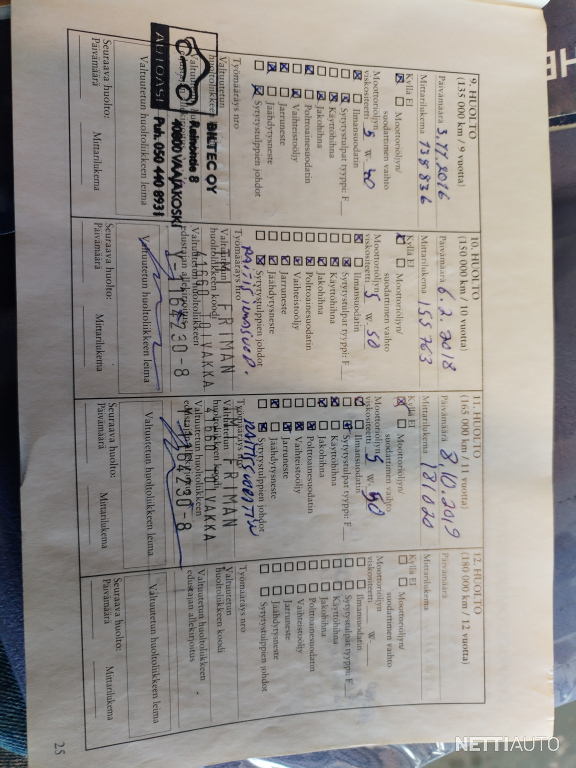 9. HUOLTO
(135 000 km / 9 vuotta)
Päivämäärä 3.11.2016
Mittarilukema 138836
Kyllä Ei
Moottoriöljyn/
suodattimen vaihto
Moottoriöljyn
viskositeetti 5 W- 40
Ilmansuodatin
Sytytystulpat tyyppi: F
Käyttöhihna
Jakohihna
Polttoainesuodatin
Vaihteistoöljy
Jarruneste
Jäähdytysneste
Sytytystulppien johdot
Työmääräys nro
Valtuutetun
huoltoliikkeen
BILTEC OY
40800 VAAJAKOSKI
Puh. 050 440 8931
AUTOASI
Valtuutetun huoltoliikkeen leima
Seuraava huolto:
Päivämäärä Mittarilukema
10. HUOLTO
(150 000 km / 10 vuotta)
Päivämäärä 6.2.2018
Mittarilukema 155763
Kyllä Ei
Moottoriöljyn/
suodattimen vaihto
Moottoriöljyn
viskositeetti 5 W- 50
Ilmansuodatin
Sytytystulpat tyyppi: F
Käyttöhihna
Jakohihna
Polttoainesuodatin
Vaihteistoöljy
Jarruneste
Jäähdytysneste
Sytytystulppien johdot
Työmääräys nro
Valtuutetun
FRIMAN
huoltoliikkeen koodi
Valtuutetun huoltoliikkeen
edustajan allekirjoitus
Valtuutetun huoltoliikkeen leima
Seuraava huolto:
Päivämäärä Mittarilukema
11. HUOLTO
(165 000 km / 11 vuotta)
Päivämäärä 8.10.2019
Mittarilukema 181020
Kyllä Ei
Moottoriöljyn/
suodattimen vaihto
Moottoriöljyn
viskositeetti 5 W-
Ilmansuodatin
Sytytystulpat tyyppi: F
Käyttöhihna
Jakohihna
Polttoainesuodatin
Vaihteistoöljy
Jarruneste
Jäähdytysneste
Sytytystulppien johdot
Työmääräys nro
Valtuutetun
FRIMAN
huoltoliikkeen koodi
Valtuutetun huoltoliikkeen
Valtuutetun huoltoliikkeen leima
Seuraava huolto:
Päivämäärä Mittarilukema
12. HUOLTO
(180 000 km / 12 vuotta)
Päivämäärä
Mittarilukema
Kyllä Ei
Moottoriöljyn/
suodattimen vaihto
Moottoriöljyn
viskositeetti W-
Ilmansuodatin
Sytytystulpat tyyppi: F
Käyttöhihna
Jakohihna
Polttoainesuodatin
Vaihteistoöljy
Jarruneste
Jäähdytysneste
Sytytystulppien johdot
Työmääräys nro
Valtuutetun
huoltoliikkeen koodi
Valtuutetun huoltoliikkeen
edustajan allekirjoitus
Valtuutetun huoltoliikkeen leima
Seuraava huolto:
Päivämäärä Mittarilukema
25
NETTIAUTO